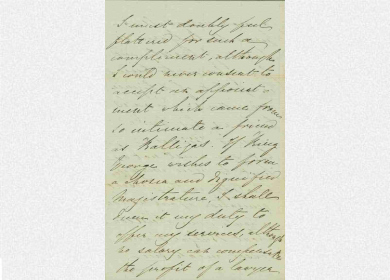 I must doubly feel
flattered for such a
compliment, although
I would never consent to
accept an appoint
ment which came from
so intimate a friend
as Kalligas. If King
George wishes to form
a and dignified
Magistrature, I shall
deem it my duty to
offer my services, although
no salary can compensate
the profit of a lawyer